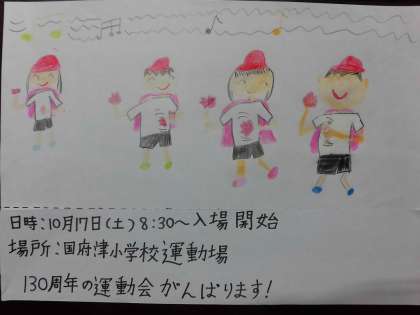 日時:10月17日(土)8:30～入場開始
場所:国府津小学校運動場
130周年の運動会がんばります!